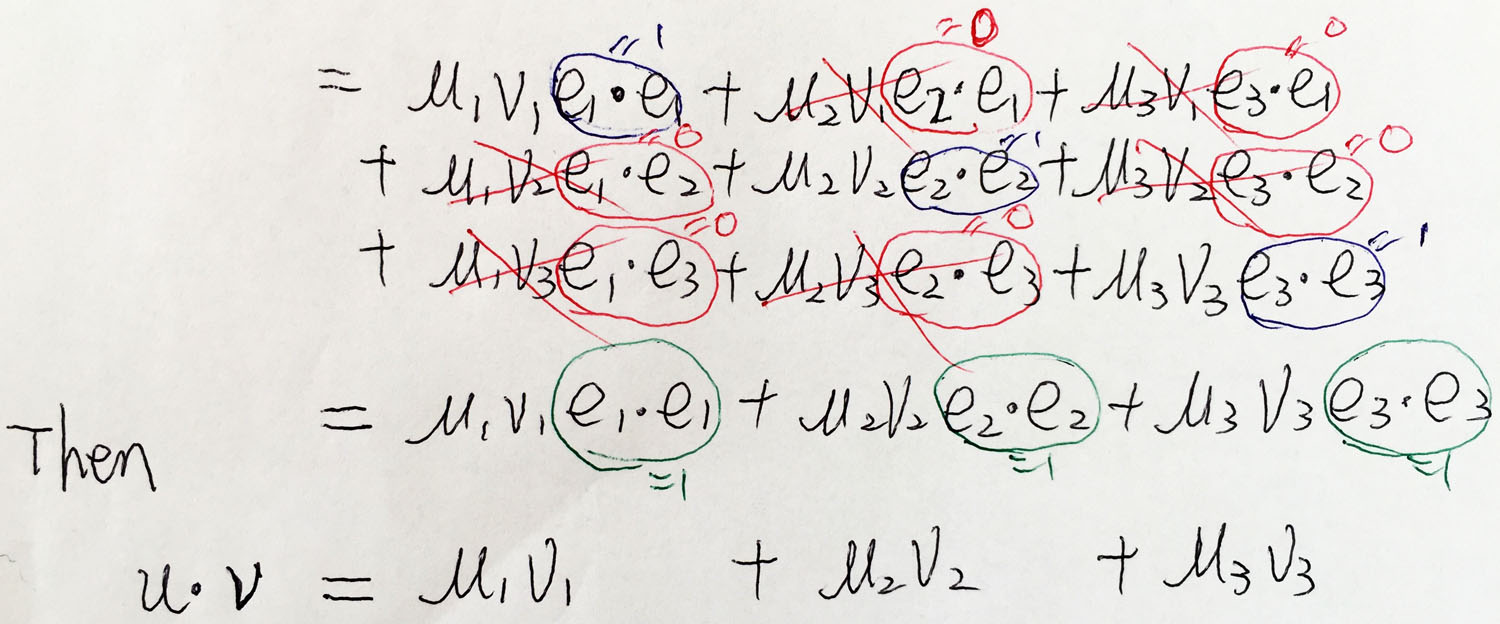 =1 =0 =0
= u₁v₁e₁·e₁ + u₂v₁e₂·e₁ + u₃v₁e₃·e₁
=0 =1 =0
+ u₁v₂e₁·e₂ + u₂v₂e₂·e₂ + u₃v₂e₃·e₂
=0 =0 =1
+ u₁v₃e₁·e₃ + u₂v₃e₂·e₃ + u₃v₃e₃·e₃
= u₁v₁e₁·e₁ + u₂v₂e₂·e₂ + u₃v₃e₃·e₃
Then
=1 =1 =1
u·v = u₁v₁ + u₂v₂ + u₃v₃